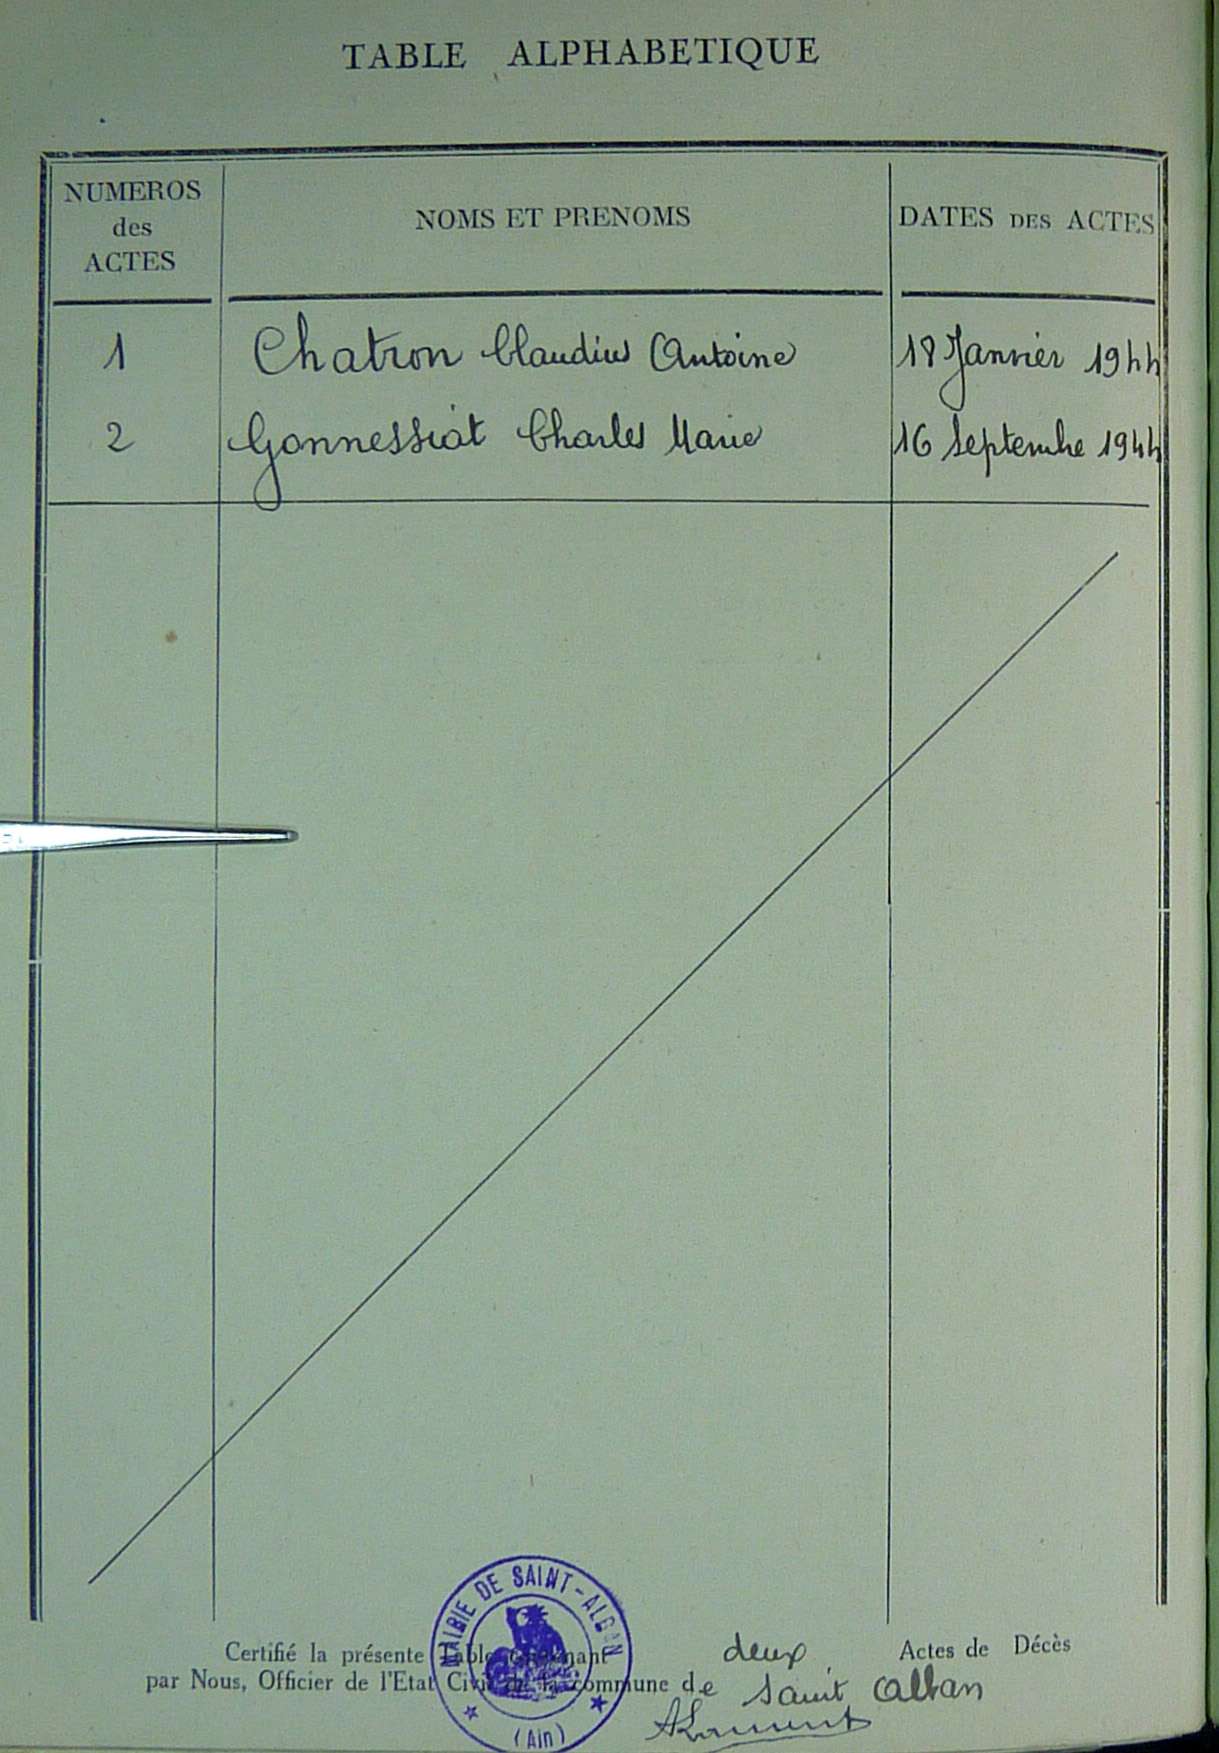 TABLE ALPHABETIQUE
NUMEROS
des
ACTES
NOMS ET PRENOMS
DATES DES ACTES
1 Chatron Claudius Antoine 18 Janvier 1944
2 Gonnessiat Charles Marie 16 Septembre 1944
Certifié la présente Table contenant deux Actes de Décès
par Nous, Officier de l'Etat Civil de la commune de Saint Alban
MAIRIE DE SAINT-ALBAN
(Ain)